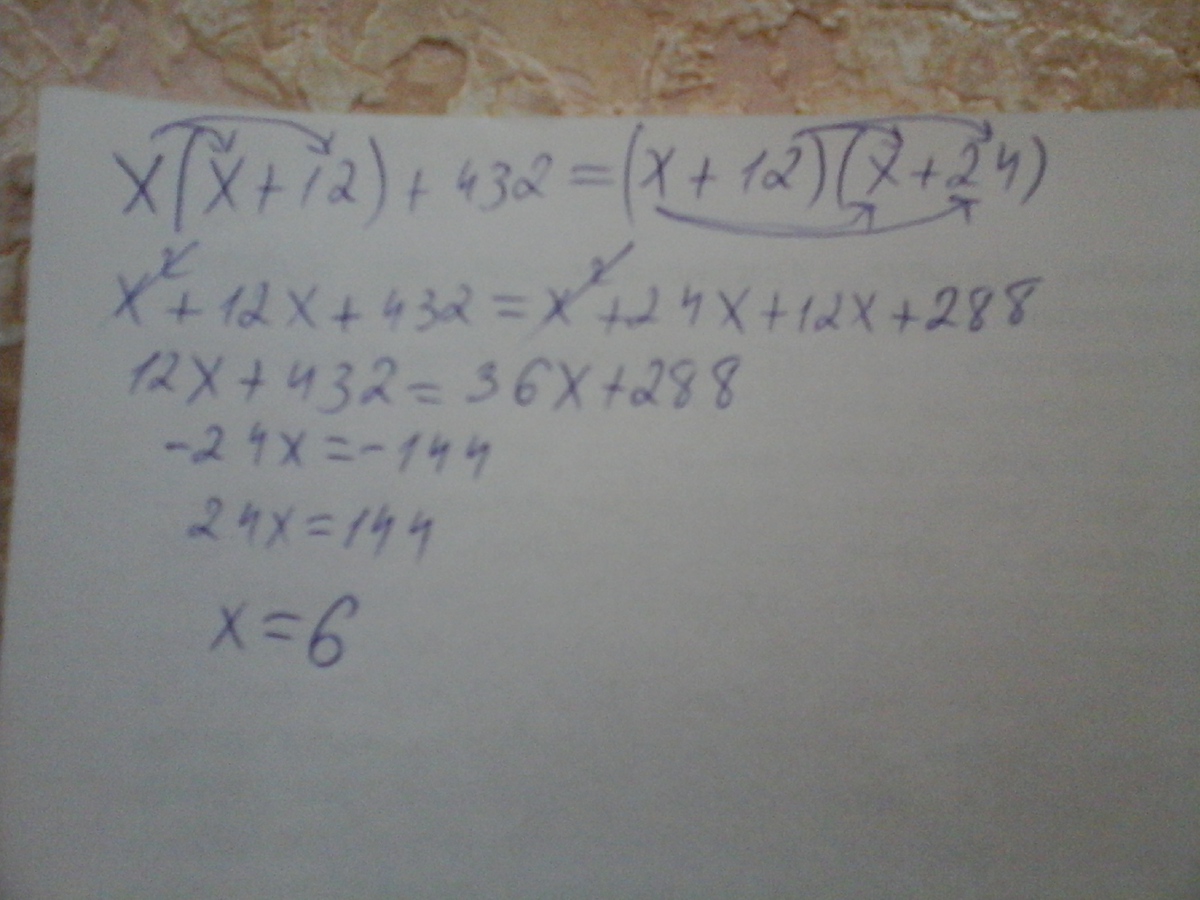 x(x+12)+432=(x+12)(x+24)
x²+12x+432=x²+24x+12x+288
12x+432=36x+288
-24x=-144
24x=144
x=6